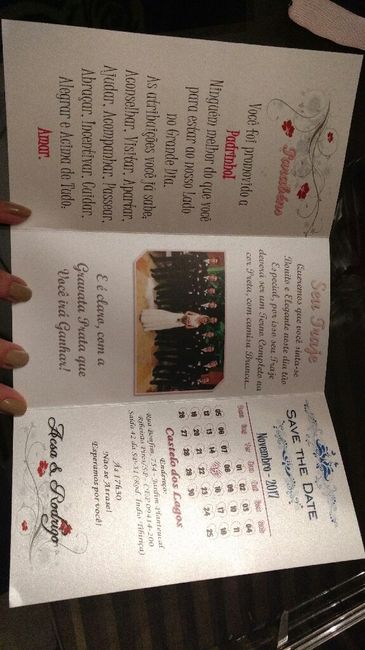 Parabéns
Você foi promovido a
Padrinho!
Ninguém melhor do que você
para estar ao nosso Lado
no Grande Dia.
As atribuições você já sabe,
Aconselhar, Visitar, Apartar,
Ajudar, Acompanhar, Passear,
Abraçar, Incentivar, Cuidar,
Alegrar e Acima de Tudo,
Amar.
Seu Traje
Queremos que você sinta-se
Bonito e Elegante neste dia tão
Especial, por isso seu Traje
deverá ser um Terno Completo na
cor Preta, com camisa Branca...
E é claro, com a
Gravata Prata que
Você irá Ganhar!
SAVE THE DATE
Novembro - 2017
01 02 03 04
05 06 07 08 09 10 11
12 13 14 16 17 18
19 20 21 22 23 24 25
26 27 28 29 30
Endereço:
Castelo dos Lagos
Ribeirão Pires/SP - CEP 09414-200
Às 17h30
Não se Atrase!
Esperamos por você!
& Rodrigo